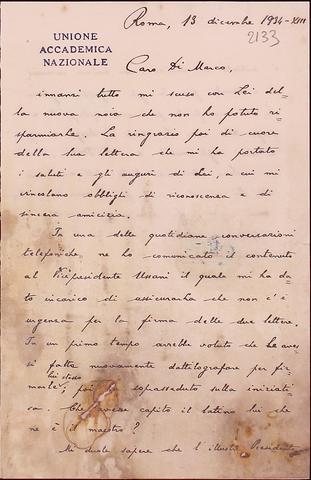 Roma, 13 dicembre 1934-XIII
2133
UNIONE
ACCADEMICA
NAZIONALE
Caro Di Marco,
innanzi tutto mi scuso con Lei del-
la nuova noia che non ho potuto ri-
sparmiarle. La ringrazio poi di cuore
della Sua lettera che mi ha portato
i saluti e gli auguri di Lei, a cui mi
vincolano obblighi di riconoscenza e di
sincera amicizia.
In una delle quotidiane conversazioni
telefoniche, ne ho comunicato il contenuto
al Vicepresidente Ussani il quale mi ha da-
to incarico di assicurarla che non c'è
urgenza per la firma delle due lettere.
In un primo tempo avrebbe voluto che le aves-
si fatte nuovamente dattilografare per fir-
marle lui stesso; poi soprasseduto sulla iniziati-
va. Che avesse capito il latino lui che
ne è il maestro?
Mi duole sapere che l'illustre Presidente